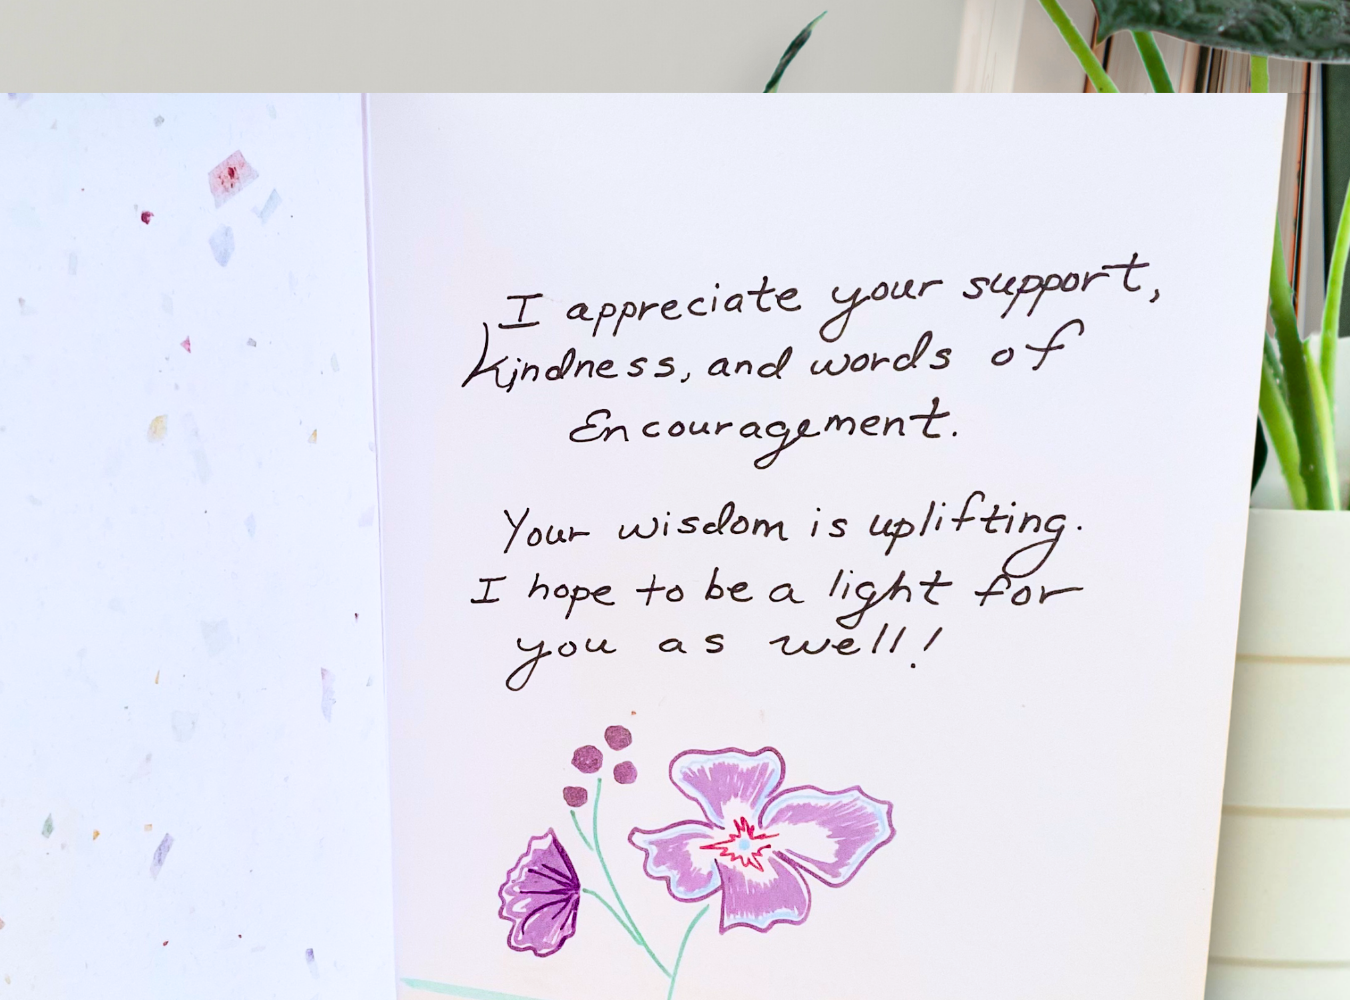 I appreciate your support,
Kindness, and words of
Encouragement.
Your wisdom is uplifting.
I hope to be a light for
you as well!